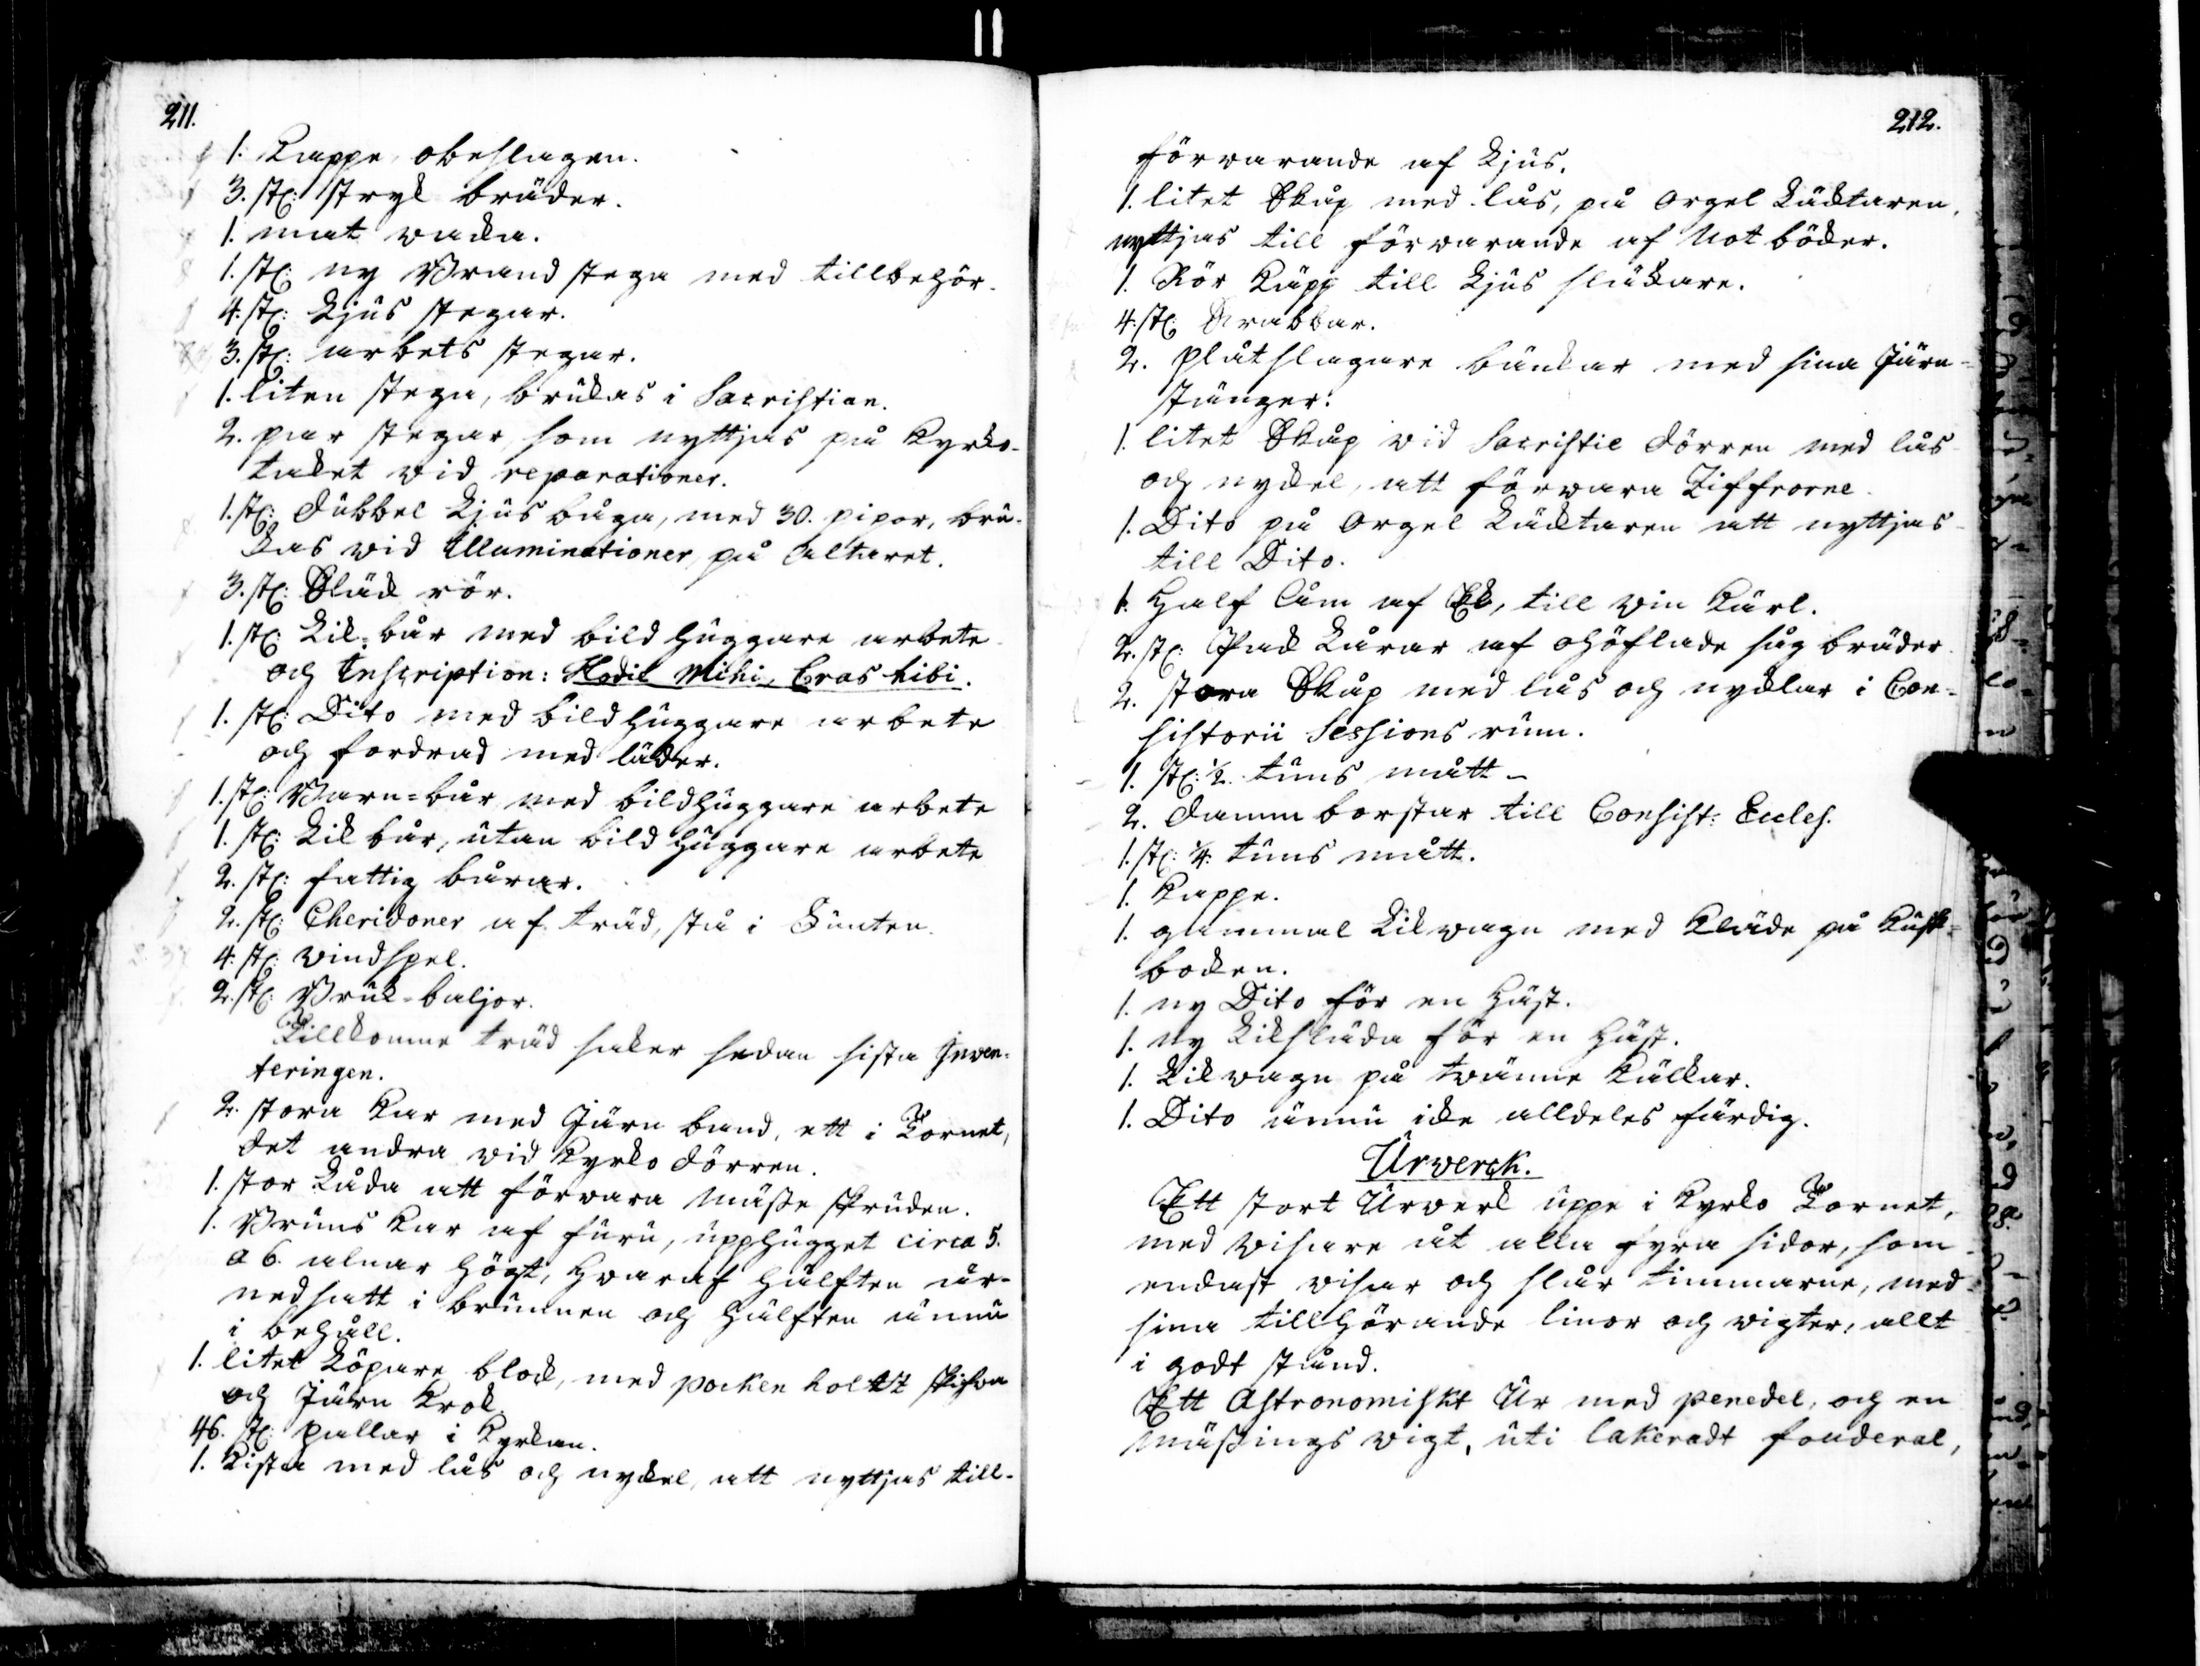 211.
1. Kappe, obeslagen.
3. st: stryk bräder.
1. mat vacka.
1. st: ny Brand stega med tillbehör.
4. st: Ljus stegar.
3. st: arbets stegar.
1. liten stega, brukas i Sacristian.
2. par stegar, som nyttjas på Kyrko-
taket vid reparationer.
1. st: dubbel Ljus båga, med 30. pipor, bru-
kas vid Illuminationer på altaret.
3. st: Släck rör.
1. st: Lik-bår med bildhuggare arbete
och Inscription: Hodie Mihi, Cras tibi.
1. st: Dito med bildhuggare arbete
och fordrad med läder.
1. st: Barn-bår med bildhuggare arbete
1. st: Lik bår, utan bildhuggare arbete
2. st: fattig bårar.
2. st: Gheridoner af träd, stå i Funten.
4. st: vindspel.
2. st: Bruk-baljor.
Tillkomne träd saker sedan sista Inven-
teringen.
2. stora Kar med Järn band, ett i Tornet,
det andra vid Kyrko dörren.
1. stor Låda att förvara Mässe skruden.
1. Brunskar af furu, upphugget circa 5.
a 6. alnar högt, hvaraf hälften är
nedsatt i brunnen och hälften ännu
i behåll.
1. litet Löpare block, med pockenholtz skifva
och Järn Krok.
46. st: pallar i Kyrkan.
1. Kista med lås och nyckel, att nyttjas till
212.
förvarande af Ljus.
1. litet Skåp med lås, på Orgel Läcktaren,
nyttjas till förvarande af Not böcker.
1. Rör Käpp till Ljus släckare.
4. st: Krabbar.
2. plåtslagare bänkar med sina Järn-
stänger.
1. litet Skåp vid Sacristie dörren med lås
och nyckel, att förvara Ziffrorne.
1. Dito på Orgel Läcktaren att nyttjas
till Dito.
1. Half Åm af Ek, till vin Kärl.
2. st: Pack Lårar af ohöflade såg bräder.
2. stora Skåp med lås och nycklar i Con-
sistorii Sessions rum.
1. st: 1/2. tuns mått
2. damm borstar till Consist: Eccles.
1. st: 1/4. tuns mått.
1. Kappe.
1. gammal Likvagn med Kläde på Kusk-
bocken.
1. ny Dito för en häst.
1. ny Likslåda för en häst.
1. Likvagn på tvänne Kälkar.
1. Dito ännu icke alldeles färdig.
Urverck.
Ett stort Urverk uppe i Kyrko Tornet,
med visare åt alla fyra sidor, som
endast visar och slår timmarne, med
sina tillhörande linor och vigter, allt
i godt stånd.
Ett Astronomiskt Ur med penedel, och en
Mässings vigt, uti lakeradt fouderal,